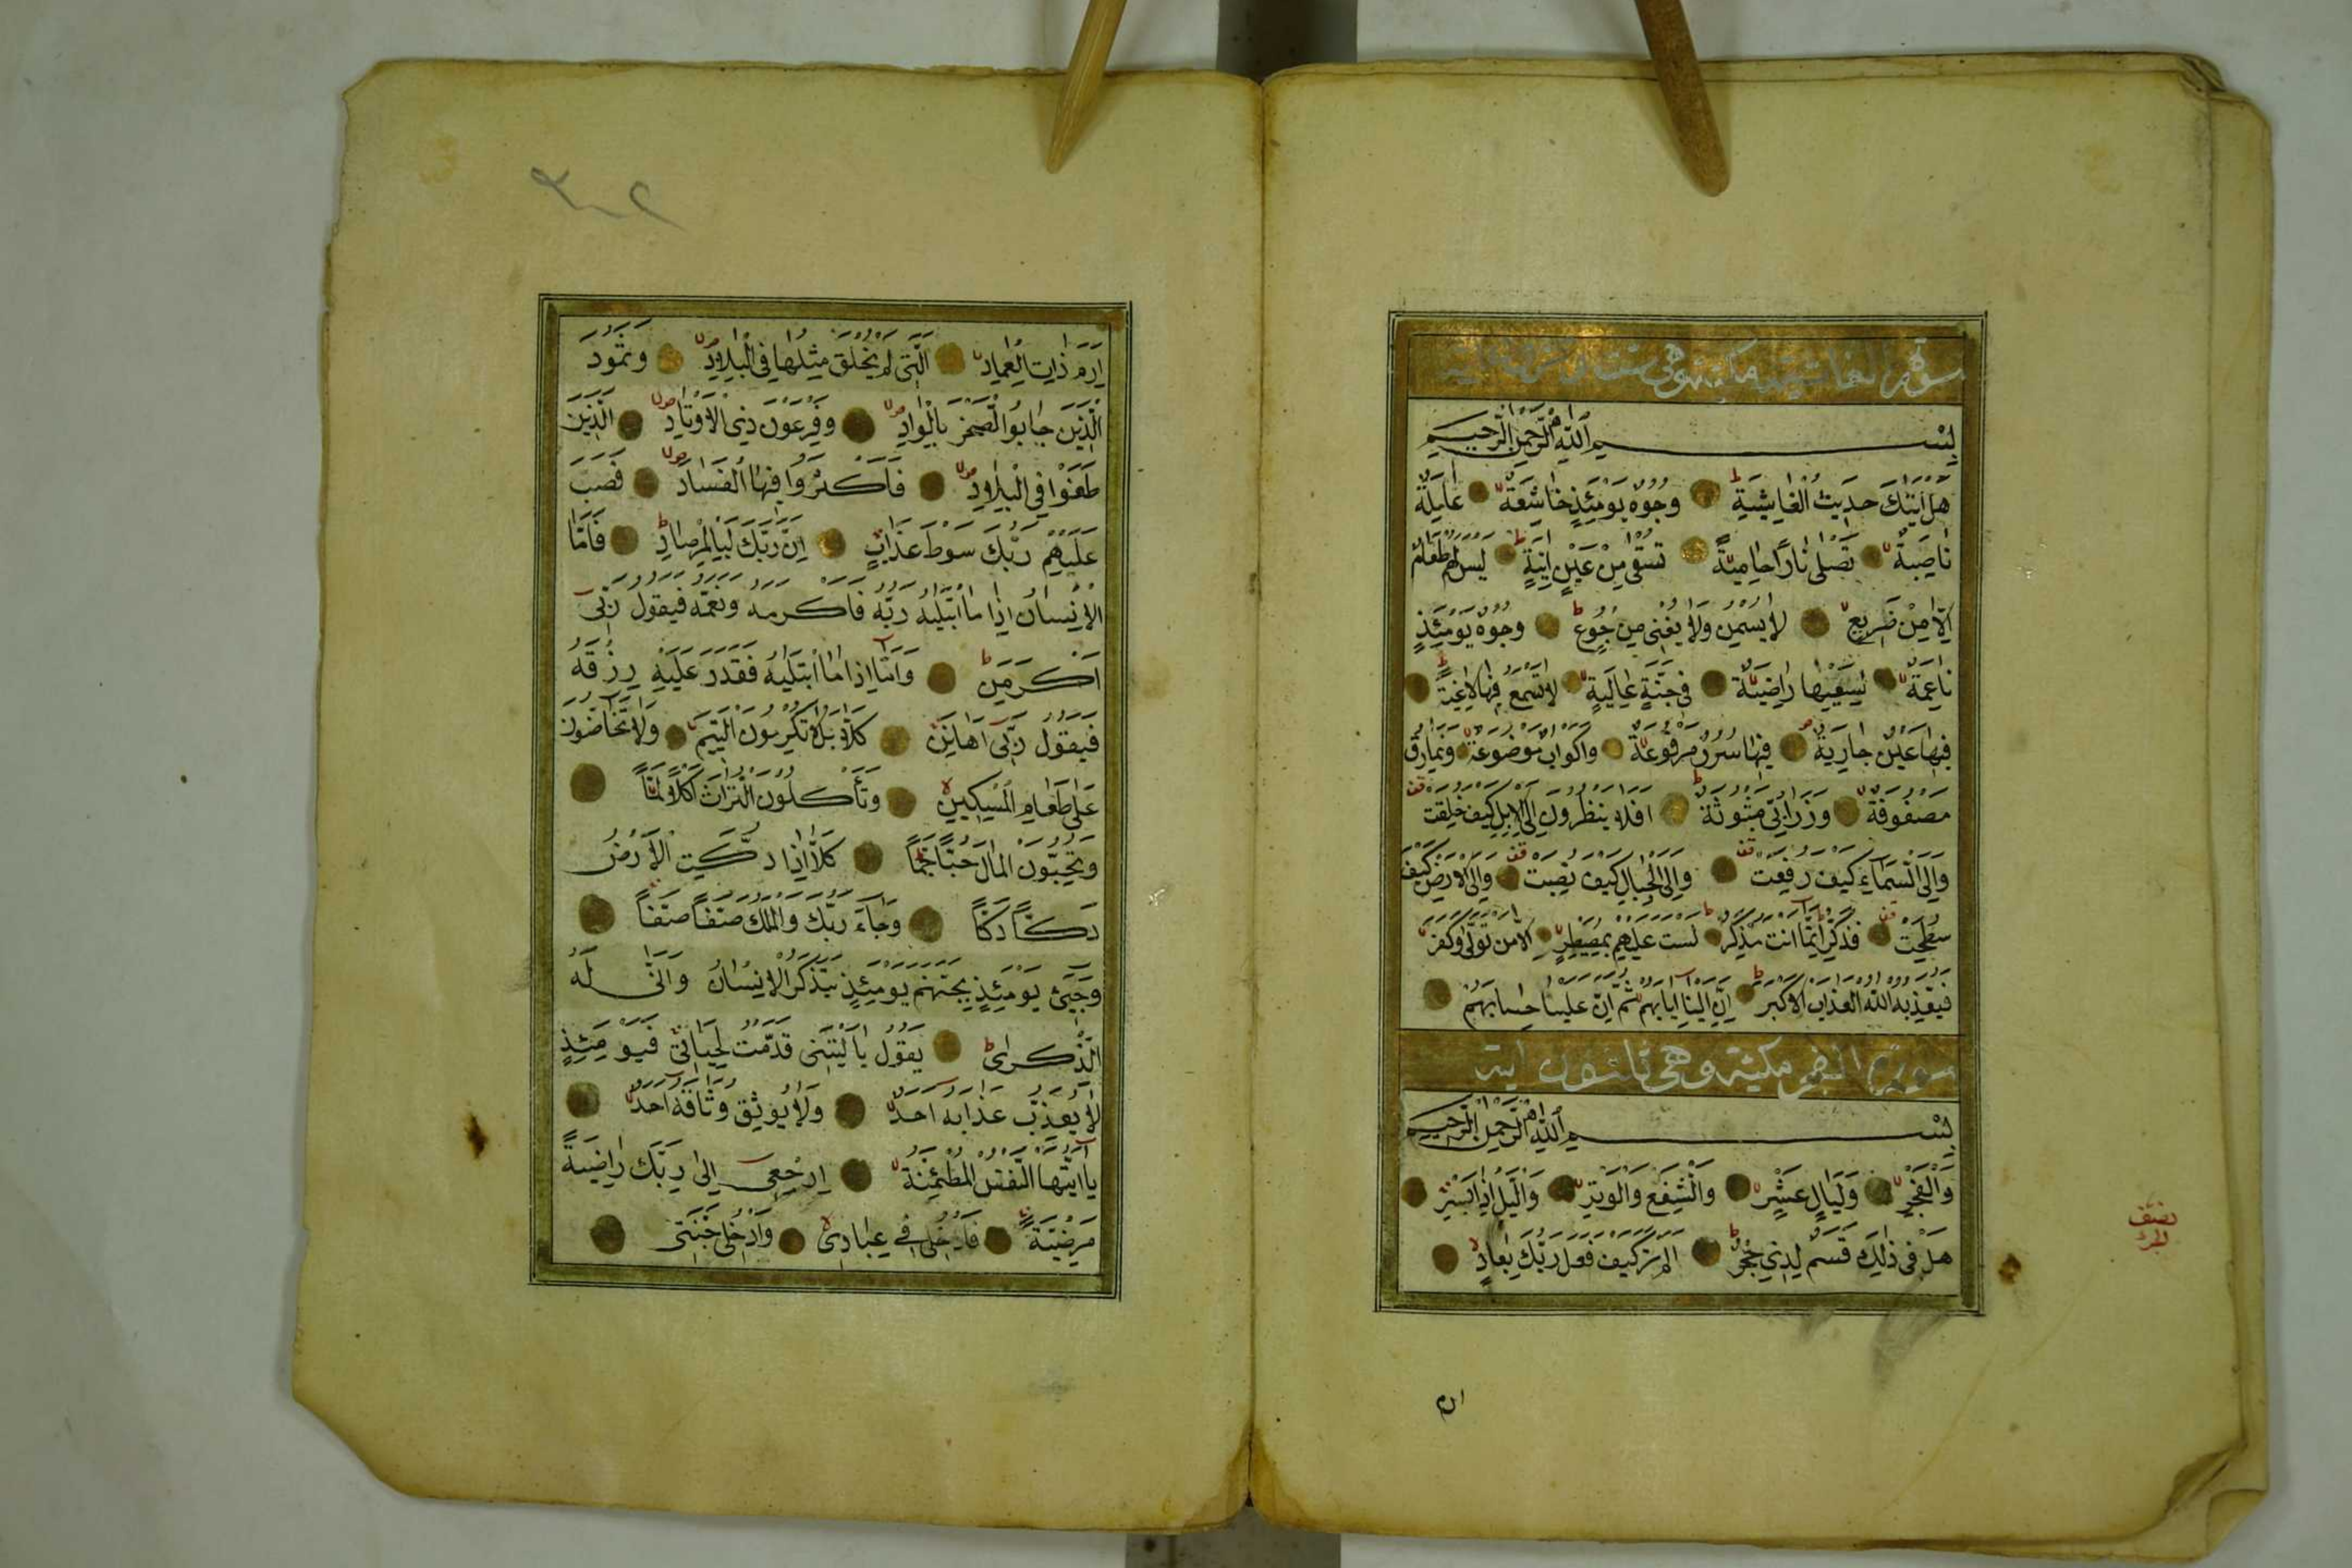 سورة الغاشية مكية وهي ست وعشرون آية
بِسْمِ اللّٰهِ الرَّحْمٰنِ الرَّحِيمِ
هَلْ اَتٰيكَ حَدِيثُ الْغَاشِيَةِ ۝ وُجُوهٌ يَوْمَئِذٍ خَاشِعَةٌ ۝ عَامِلَةٌ
نَاصِبَةٌ ۝ تَصْلٰى نَارًا حَامِيَةً ۝ تُسْقٰى مِنْ عَيْنٍ اٰنِيَةٍ ۝ لَيْسَ لَهُمْ طَعَامٌ
اِلَّا مِنْ ضَرِيعٍ ۝ لَا يُسْمِنُ وَلَا يُغْنِى مِنْ جُوعٍ ۝ وُجُوهٌ يَوْمَئِذٍ
نَاعِمَةٌ ۝ لِسَعْيِهَا رَاضِيَةٌ ۝ فِى جَنَّةٍ عَالِيَةٍ ۝ لَا تَسْمَعُ فِيهَا لَاغِيَةً ۝
فِيهَا عَيْنٌ جَارِيَةٌ ۝ فِيهَا سُرُرٌ مَرْفُوعَةٌ ۝ وَاَكْوَابٌ مَوْضُوعَةٌ ۝ وَنَمَارِقُ
مَصْفُوفَةٌ ۝ وَزَرَابِىُّ مَبْثُوثَةٌ ۝ اَفَلَا يَنْظُرُونَ اِلَى الْاِبِلِ كَيْفَ خُلِقَتْ
وَاِلَى السَّمَاءِ كَيْفَ رُفِعَتْ ۝ وَاِلَى الْجِبَالِ كَيْفَ نُصِبَتْ ۝ وَاِلَى الْاَرْضِ كَيْفَ
سُطِحَتْ ۝ فَذَكِّرْ اِنَّمَا اَنْتَ مُذَكِّرٌ ۝ لَسْتَ عَلَيْهِمْ بِمُصَيْطِرٍ ۝ اِلَّا مَنْ تَوَلّٰى وَكَفَرَ
فَيُعَذِّبُهُ اللّٰهُ الْعَذَابَ الْاَكْبَرَ ۝ اِنَّ اِلَيْنَا اِيَابَهُمْ ثُمَّ اِنَّ عَلَيْنَا حِسَابَهُمْ ۝
سورة الفجر مكية وهي ثلثون اية
بِسْمِ اللّٰهِ الرَّحْمٰنِ الرَّحِيمِ
وَالْفَجْرِ ۝ وَلَيَالٍ عَشْرٍ ۝ وَالشَّفْعِ وَالْوَتْرِ ۝ وَالَّيْلِ اِذَا يَسْرِ ۝
هَلْ فِى ذٰلِكَ قَسَمٌ لِذِى حِجْرٍ ۝ اَلَمْ تَرَ كَيْفَ فَعَلَ رَبُّكَ بِعَادٍ ۝
ارم
نصف
الحزب
٣٠٢
اِرَمَ ذَاتِ الْعِمَادِ ۝ الَّتِى لَمْ يُخْلَقْ مِثْلُهَا فِى الْبِلَادِ ۝ وَثَمُودَ
الَّذِينَ جَابُوا الصَّخْرَ بِالْوَادِ ۝ وَفِرْعَوْنَ ذِى الْاَوْتَادِ ۝ الَّذِينَ
طَغَوْا فِى الْبِلَادِ ۝ فَاَكْثَرُوا فِيهَا الْفَسَادَ ۝ فَصَبَّ
عَلَيْهِمْ رَبُّكَ سَوْطَ عَذَابٍ ۝ اِنَّ رَبَّكَ لَبِالْمِرْصَادِ ۝ فَاَمَّا
الْاِنْسَانُ اِذَا مَا ابْتَلٰيهُ رَبُّهُ فَاَكْرَمَهُ وَنَعَّمَهُ فَيَقُولُ رَبِّى
اَكْرَمَنِ ۝ وَاَمَّا اِذَا مَا ابْتَلٰيهُ فَقَدَرَ عَلَيْهِ رِزْقَهُ
فَيَقُولُ رَبِّى اَهَانَنِ ۝ كَلَّا بَلْ لَا تُكْرِمُونَ الْيَتِيمَ ۝ وَلَا تَحَاضُّونَ
عَلٰى طَعَامِ الْمِسْكِينِ ۝ وَتَأْكُلُونَ التُّرَاثَ اَكْلًا لَمًّا ۝
وَتُحِبُّونَ الْمَالَ حُبًّا جَمًّا ۝ كَلَّا اِذَا دُكَّتِ الْاَرْضُ
دَكًّا دَكًّا ۝ وَجَاءَ رَبُّكَ وَالْمَلَكُ صَفًّا صَفًّا ۝
وَجِىءَ يَوْمَئِذٍ بِجَهَنَّمَ يَوْمَئِذٍ يَتَذَكَّرُ الْاِنْسَانُ وَاَنّٰى لَهُ
الذِّكْرٰى ۝ يَقُولُ يَا لَيْتَنِى قَدَّمْتُ لِحَيَاتِى ۝ فَيَوْمَئِذٍ
لَا يُعَذِّبُ عَذَابَهُ اَحَدٌ ۝ وَلَا يُوثِقُ وَثَاقَهُ اَحَدٌ ۝
يَا اَيَّتُهَا النَّفْسُ الْمُطْمَئِنَّةُ ۝ اِرْجِعِى اِلٰى رَبِّكِ رَاضِيَةً
مَرْضِيَّةً ۝ فَادْخُلِى فِى عِبَادِى ۝ وَادْخُلِى جَنَّتِى ۝